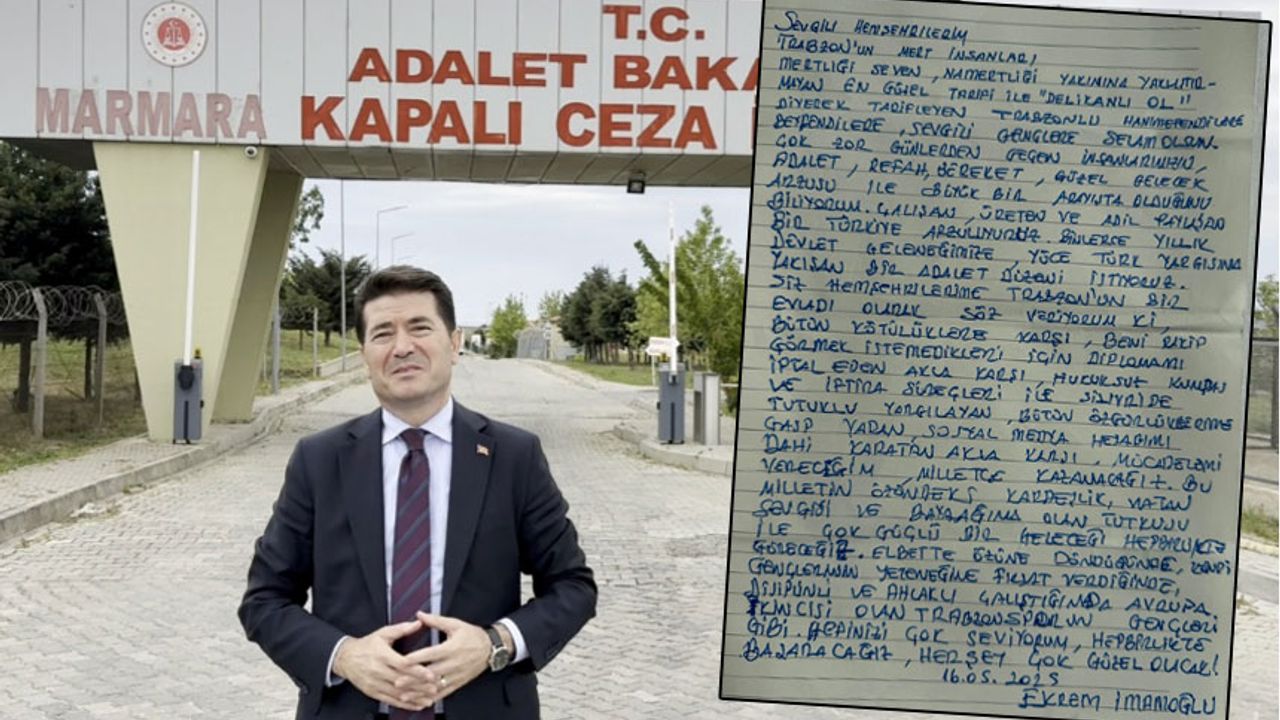 T.C.
ADALET BAKA
MARMARA KAPALI CEZA
SEVGİLİ HEMŞEHRİLERİM
TRABZON'UN MERT İNSANLARI
MERTLİĞİ SEVEN, NAMERTLİĞİ YAKININA YAKLAŞTIR-
MAYAN EN GÜZEL TARİFİ İLE "DELİKANLI OL"
DİYEREK TARİFLEYEN TRABZONLU HANIMEFENDİLERE
BEYFENDİLERE, SEVGİLİ GENÇLERE SELAM OLSUN.
ÇOK ZOR GÜNLERDEN GEÇEN İNSANLARIMIZIN,
ADALET, REFAH, BEREKET, GÜZEL GELECEK
ARZUSU İLE BÜYÜK BİR ARAYIŞTA OLDUĞUNU
BİLİYORUM. ÇALIŞAN, ÜRETEN VE ADİL PAYLAŞAN
BİR TÜRKİYE ARZULUYORUZ. BİNLERCE YILLIK
DEVLET GELENEĞİMİZE, YÜCE TÜRK YARGISINA
YAKIŞAN BİR ADALET DÜZENİ İSTİYORUZ.
SİZ HEMŞEHRİLERİME TRABZON'UN BİR
EVLADI OLARAK SÖZ VERİYORUM Kİ,
BÜTÜN KÖTÜLÜKLERE KARŞI, BENİ RAKİP
GÖRMEK İSTEMEDİKLERİ İÇİN DİPLOMAMI
İPTAL EDEN AKLA KARŞI, HUKUKSUZ KUMPAS
VE İFTİRA SÜREÇLERİ İLE SİLİVRİDE
TUTUKLU YARGILAYAN, BÜTÜN ÖZGÜRLÜKLERİME
GASP YAPAN, SOSYAL MEDYA HESABIMI
DAHİ KARATAN AKLA KARŞI, MÜCADELEMİ
VERECEĞİM, MİLLETÇE KAZANACAĞIZ. BU
MİLLETİN ÖZÜNDEKİ KARDEŞLİK, VATAN
SEVGİSİ VE BAYRAĞINA OLAN TUTKUSU
İLE ÇOK GÜÇLÜ BİR GELECEĞİ HEPBİRLİKTE
GÖRECEĞİZ. ELBETTE ÖZÜNE DÖNDÜĞÜNDE, KENDİ
GENÇLERİNİN YETENEĞİNE FIRSAT VERDİĞİNDE,
DİSİPLİNLİ VE AHLAKLI ÇALIŞTIĞINDA AVRUPA
İKİNCİSİ OLAN TRABZONSPORUN GENÇLERİ
GİBİ. HEPİNİZİ ÇOK SEVİYORUM, HEPBİRLİKTE
BAŞARACAĞIZ, HERŞEY ÇOK GÜZEL OLACAK!
16.05.2025
EKREM İMAMOĞLU